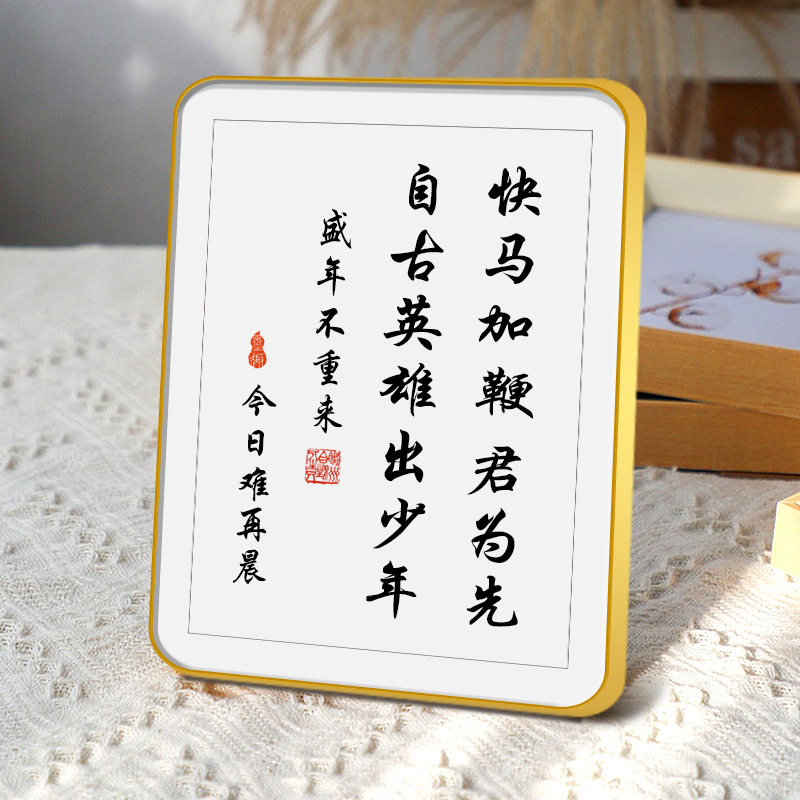 快马加鞭君为先
自古英雄出少年
盛年不重来
今日难再晨